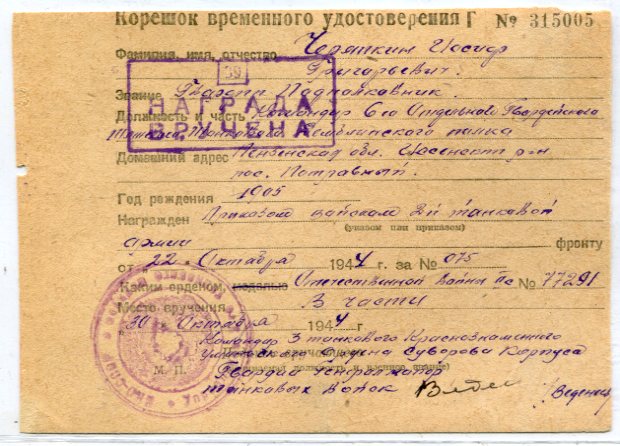 Корешок временного удостоверения Г № 315005
Фамилия, имя, отчество Черяпкин Иосиф
Григорьевич.
39
НАГРАДА
ВРУЧЕНА
Звание Гвардии Подполковник.
Должность и часть Командир 6го Отдельного Гвардейского
Танкового полка
Домашний адрес Пензенская обл.
пос.
Год рождения 1905
Награжден Приказом войскам 2й танковой
(указом или приказом)
армии фронту
от 22 Октября 1944 г. за № 075
Каким орденом, медалью Отечественной Войны IIс № 77291
Место вручения В части
"30" Октября 1944 г.
Командир 3 танкового Краснознаменного
Уманского Ордена Суворова Корпуса
М. П. Гвардии Генерал майор
танковых войск (Веденеев